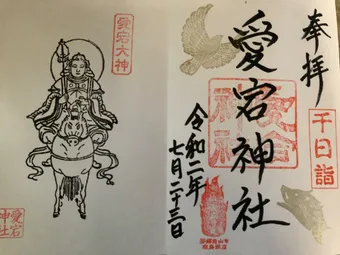 奉拝
千日詣
愛宕神社
令和二年
七月二十三日
愛宕大神
愛宕
神社